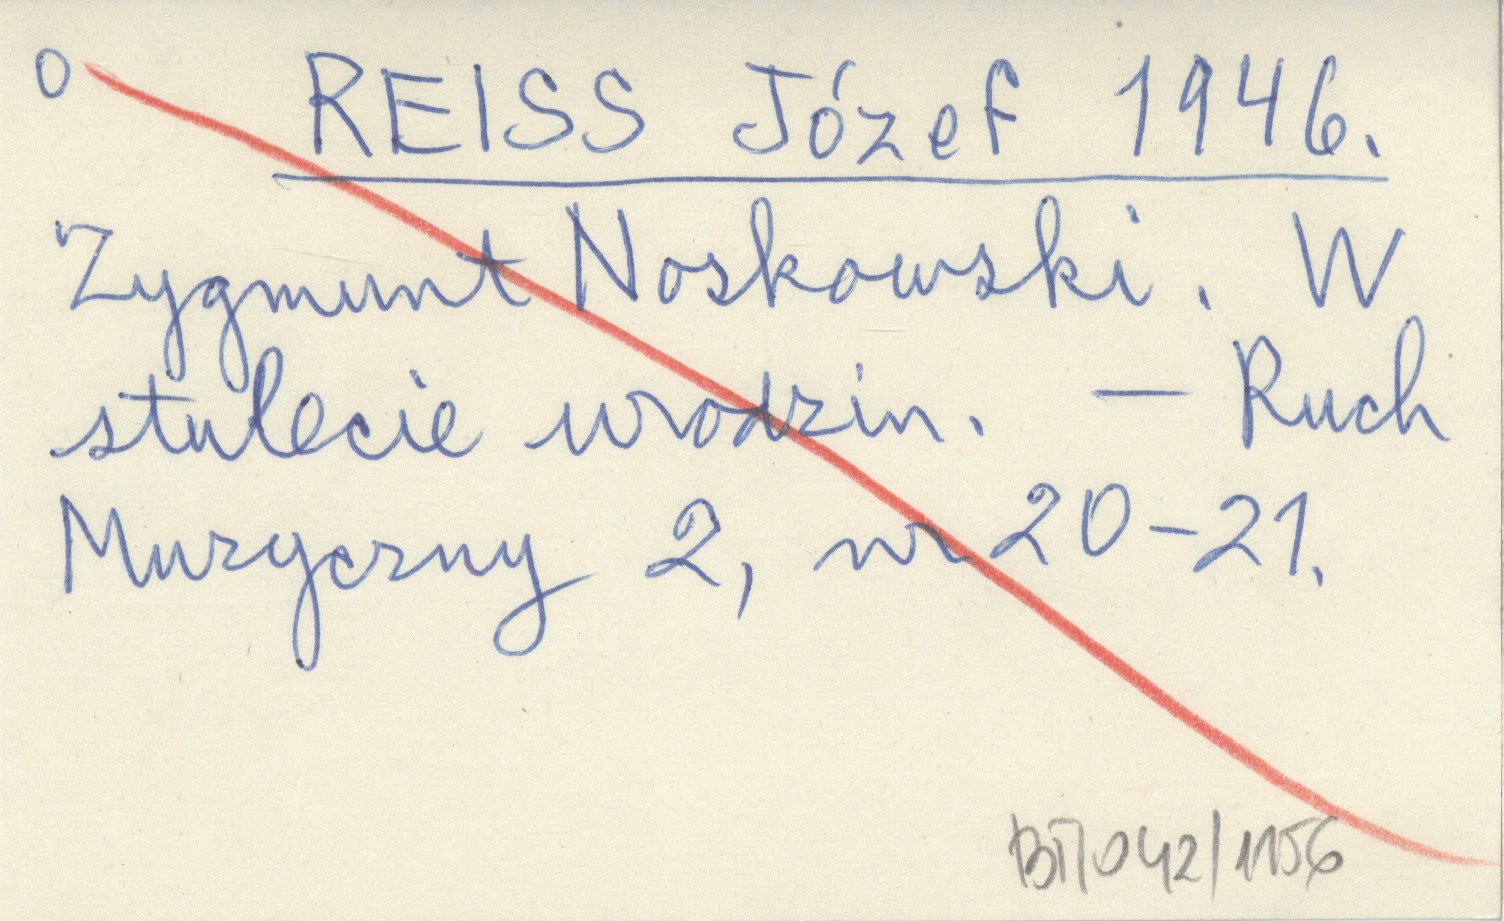 O REISS Józef 1946.
Zygmunt Noskowski. W
stulecie urodzin. — Ruch
Muzyczny 2, nr 20-21.
BT/042/1156